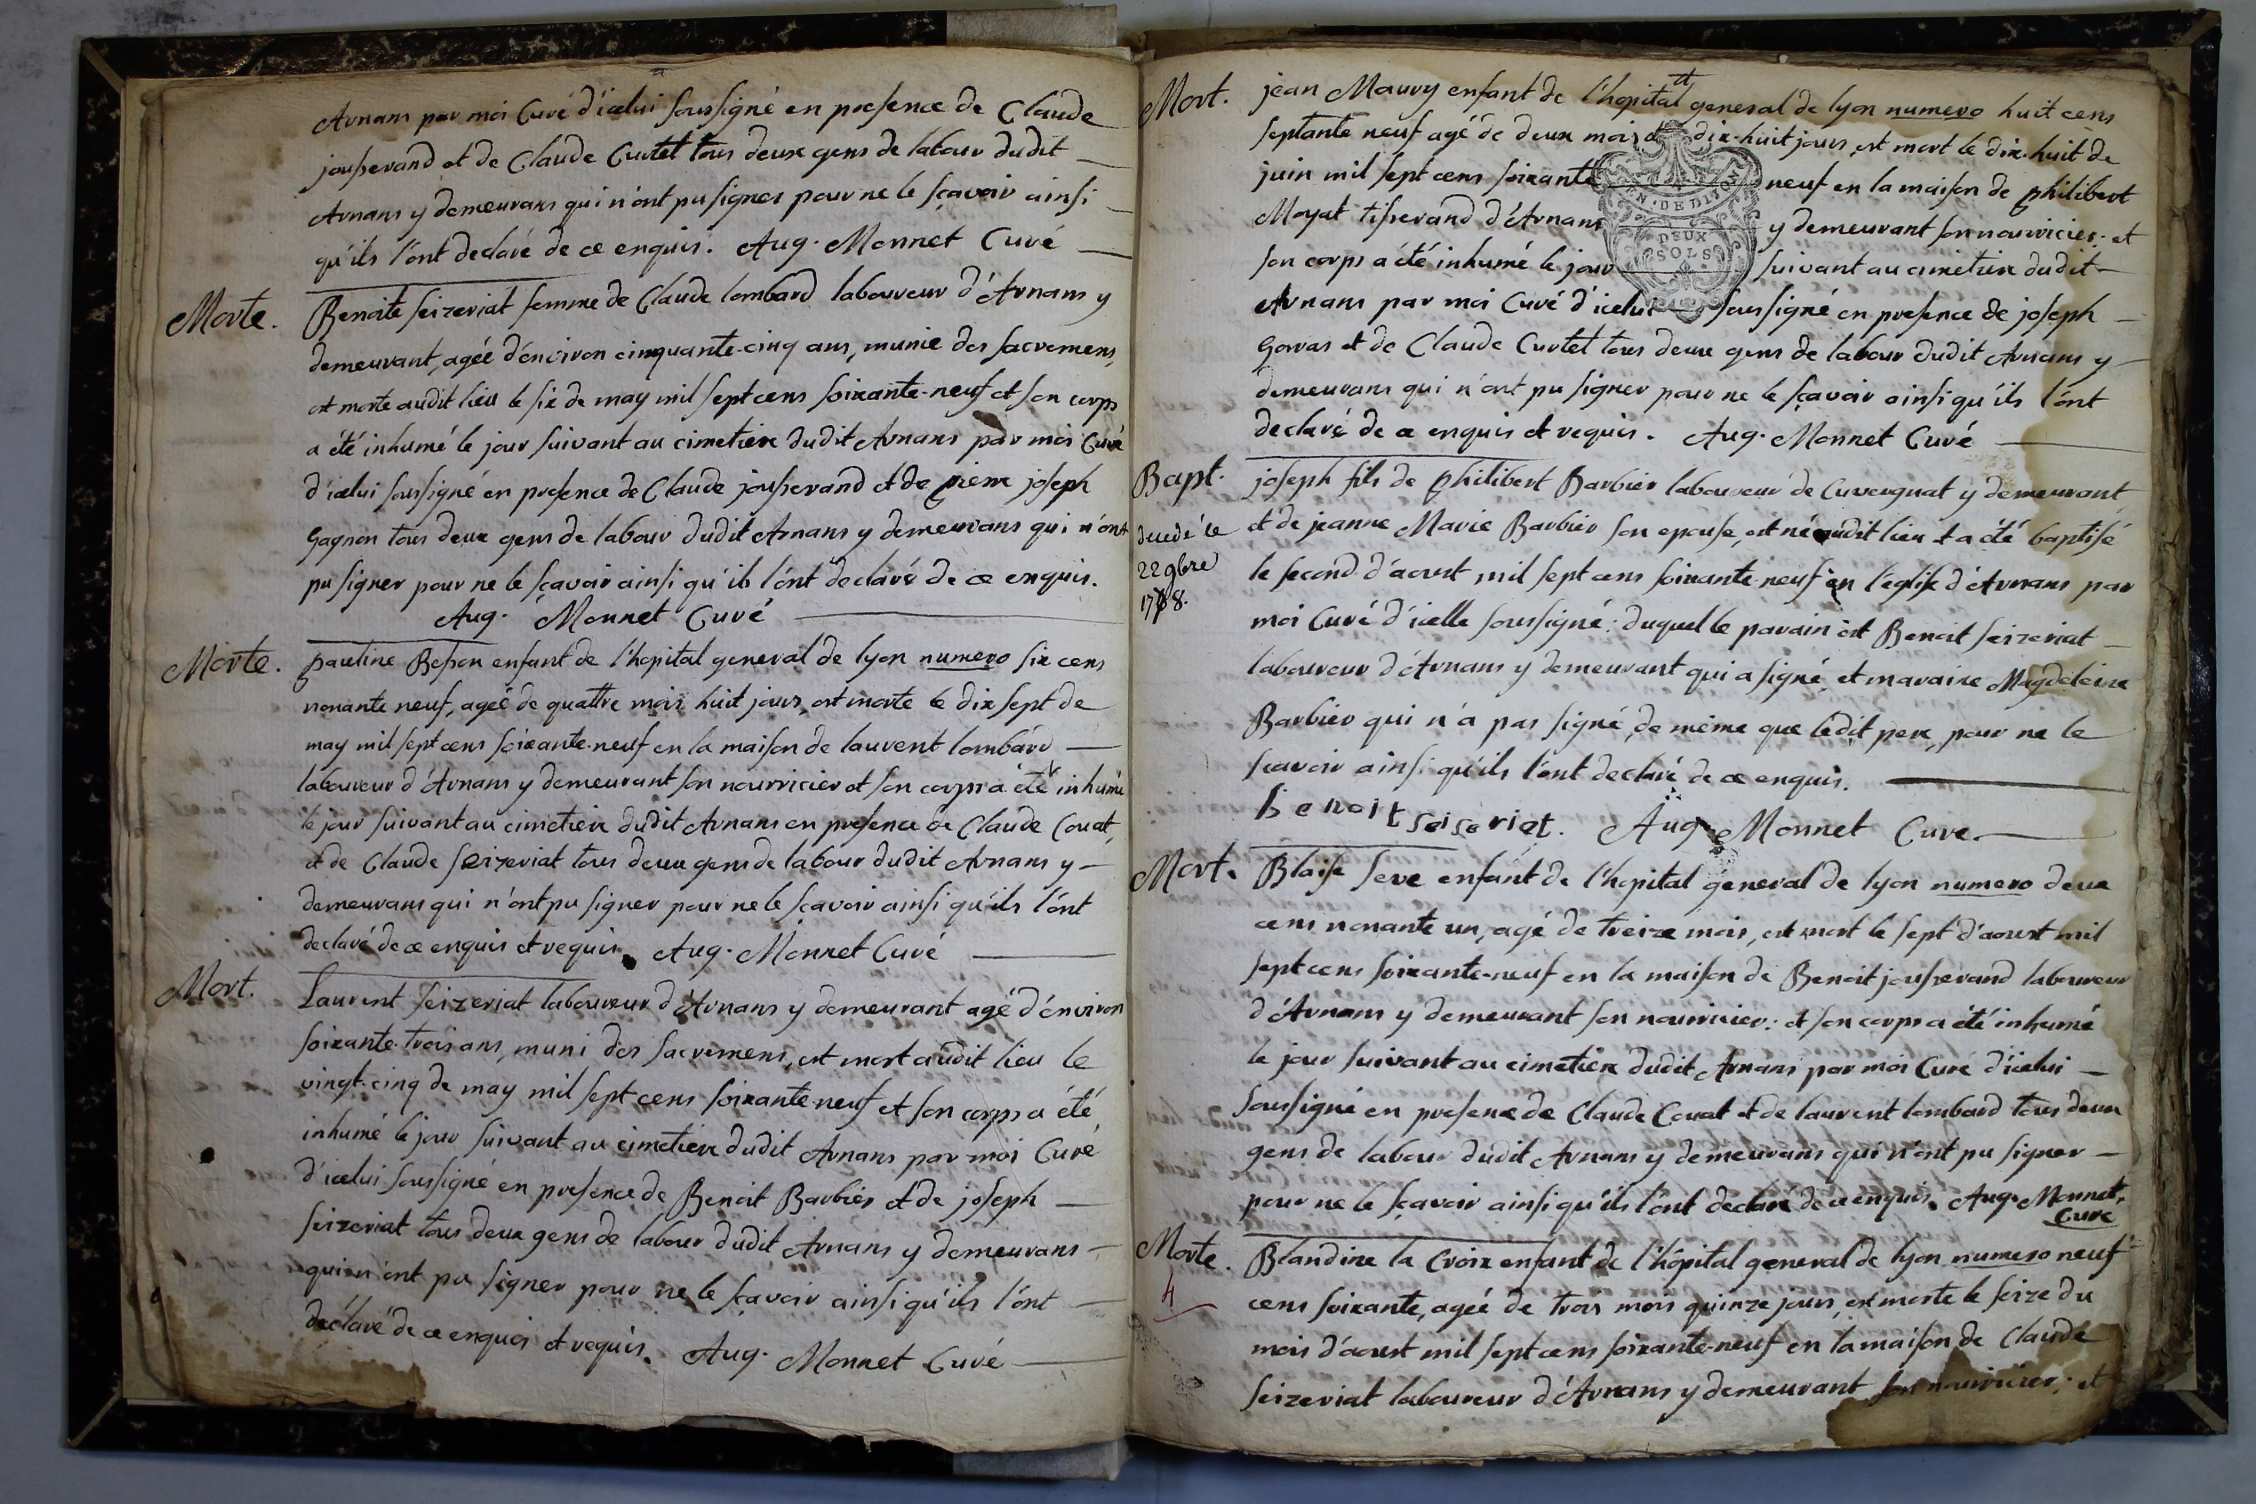 Arnans par moi Curé d'icelui soussigné en presence de Claude
jousserand et de Claude Curtet tous deux gens de labour dudit
Arnans y demeurans qui n'ont pu signer pour ne le sçavoir ainsi
qu'ils l'ont declaré de ce enquis. Aug. Monnet Curé
Morte. Benoite seizeriat femme de Claude lombard laboureur d'Arnans y
demeurant, agée d'environ cinquante-cinq ans, munie des sacremens,
est morte audit lieu le six de may mil sept cens soixante-neuf et son corps
a été inhumé le jour suivant au cimetiere dudit Arnans par moi Curé
d'icelui soussigné en presence de Claude jousserand et de pierre joseph
Gagnon tous deux gens de labour dudit Arnans y demeurans qui n'ont
pu signer pour ne le sçavoir ainsi qu'ils l'ont declaré de ce enquis.
Aug. Monnet Curé
Morte. pauline Besson enfant de l'hopital general de lyon numero six cens
nonante neuf, agée de quattre mois huit jours, est morte le dix sept de
may mil sept cens soixante-neuf en la maison de laurent lombard
laboureur d'Arnans y demeurant son nourricier et son corps a été inhumé
le jour suivant au cimetiere dudit Arnans en presence de Claude Couat,
et de Claude seizeriat tous deux gens de labour dudit Arnans y
demeurans qui n'ont pu signer pour ne le sçavoir ainsi qu'ils l'ont
declaré de ce enquis et requis. Aug. Monnet Curé
Mort. Laurent seizeriat laboureur d'Arnans y demeurant agé d'environ
soixante-trois ans, muni des sacremens, est mort audit lieu le
vingt-cinq de may mil sept cens soixante-neuf et son corps a été
inhumé le jour suivant au cimetiere dudit Arnans par moi Curé
d'icelui soussigné en presence de Benoit Barbier et de joseph
seizeriat tous deux gens de labour dudit Arnans y demeurans
qui n'ont pu signer pour ne le sçavoir ainsi qu'ils l'ont
declaré de ce enquis et requis. Aug. Monnet Curé
Mort. jean Maury enfant de l'hopital general de lyon numero huit cens
septante neuf agé de deux mois dix-huit jours, est mort le dix-huit de
juin mil sept cens soixante neuf en la maison de philibert
Moyat tisserand d'Arnans y demeurant son nourricier; et
son corps a été inhumé le jour suivant au cimetiere dudit
Arnans par moi Curé d'icelui soussigné en presence de joseph
Gorvas et de Claude Curtet tous deux gens de labour dudit Arnans y
demeurans qui n'ont pu signer pour ne le sçavoir ainsi qu'ils l'ont
declaré de ce enquis et requis. Aug. Monnet Curé
DEUX
SOLS
Bapt. joseph fils de philibert Barbier laboureur de Cuvergnat y demeurant
et de jeanne Marie Barbier son epouse, est né audit lieu et a été baptisé
le second d'aoust mil sept cens soixante-neuf en l'eglise d'Arnans par
decedé le
22 9bre
1768.
moi Curé d'icelle soussigné: duquel le parain est Benoit seizeriat
laboureur d'Arnans y demeurant qui a signé, et maraine Magdeleine
Barbier qui n'a pas signé, de même que ledit pere, pour ne le
scavoir ainsi qu'ils l'ont declaré de ce enquis.
benoit seiseriat. Aug. Monnet Cure.
Mort. Blaise Seve enfant de l'hopital general de lyon numero deux
cens nonante un, agé de treize mois, est mort le sept d'aoust mil
sept cens soixante-neuf en la maison de Benoit jousserand laboureur
d'Arnans y demeurant son nourricier: et son corps a été inhumé
le jour suivant au cimetiere dudit Arnans par moi Curé d'icelui
soussigné en presence de Claude Couat et de laurent lombard tous deux
gens de labour dudit Arnans y demeurans qui n'ont pu signer
pour ne le sçavoir ainsi qu'ils l'ont declaré de ce enquis. Aug. Monnet,
Curé
Morte. Blandine la Croix enfant de l'hôpital general de lyon numero neuf
4
cens soixante, agée de trois mois quinze jours, est morte le seize du
mois d'aoust mil sept cens soixante-neuf en la maison de Claude
seizeriat laboureur d'Arnans y demeurant son nourricier; et